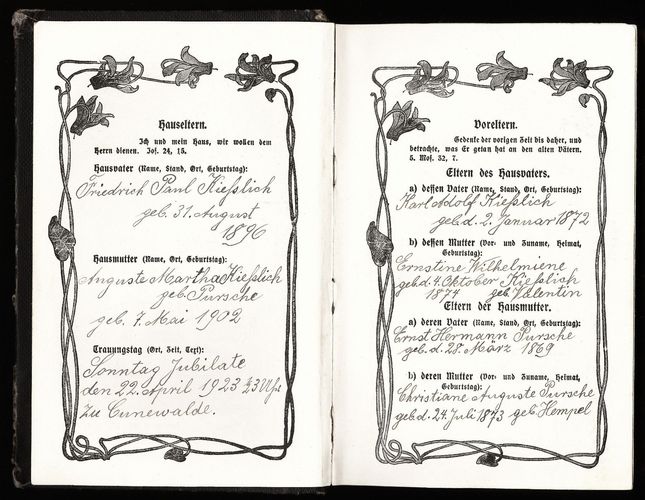 Hauseltern.
Ich und mein Haus, wir wollen dem
Herrn dienen. Jos. 24, 15.
Hausvater (Name, Stand, Ort, Geburtstag):
Friedrich Paul Kießlich
geb. 31. August
1896
Hausmutter (Name, Ort, Geburtstag):
Auguste Martha Kießlich
geb. Pursche
geb. 7. Mai 1902
Trauungstag (Ort, Zeit, Text):
Sonntag Jubilate
den 22. April 1923 ½3 Uhr
zu Cunewalde.
Voreltern.
Gedenke der vorigen Zeit bis daher, und
betrachte, was Er getan hat an den alten Vätern.
5. Mos. 32, 7.
Eltern des Hausvaters.
a) dessen Vater (Name, Stand, Ort, Geburtstag):
Karl Adolf Kießlich
geb. d. 2. Januar 1872
b) dessen Mutter (Vor- und Zuname, Heimat,
Geburtstag):
Ernstine Wilhelmiene
geb. d. 4. Oktober Kießlich
1874 geb. Valentin
Eltern der Hausmutter.
a) deren Vater (Name, Stand, Ort, Geburtstag):
Ernst Hermann Pursche
geb. d. 28. März 1869
b) deren Mutter (Vor- und Zuname, Heimat,
Geburtstag):
Christiane Auguste Pursche
geb. d. 24. Juli 1873 geb. Hempel